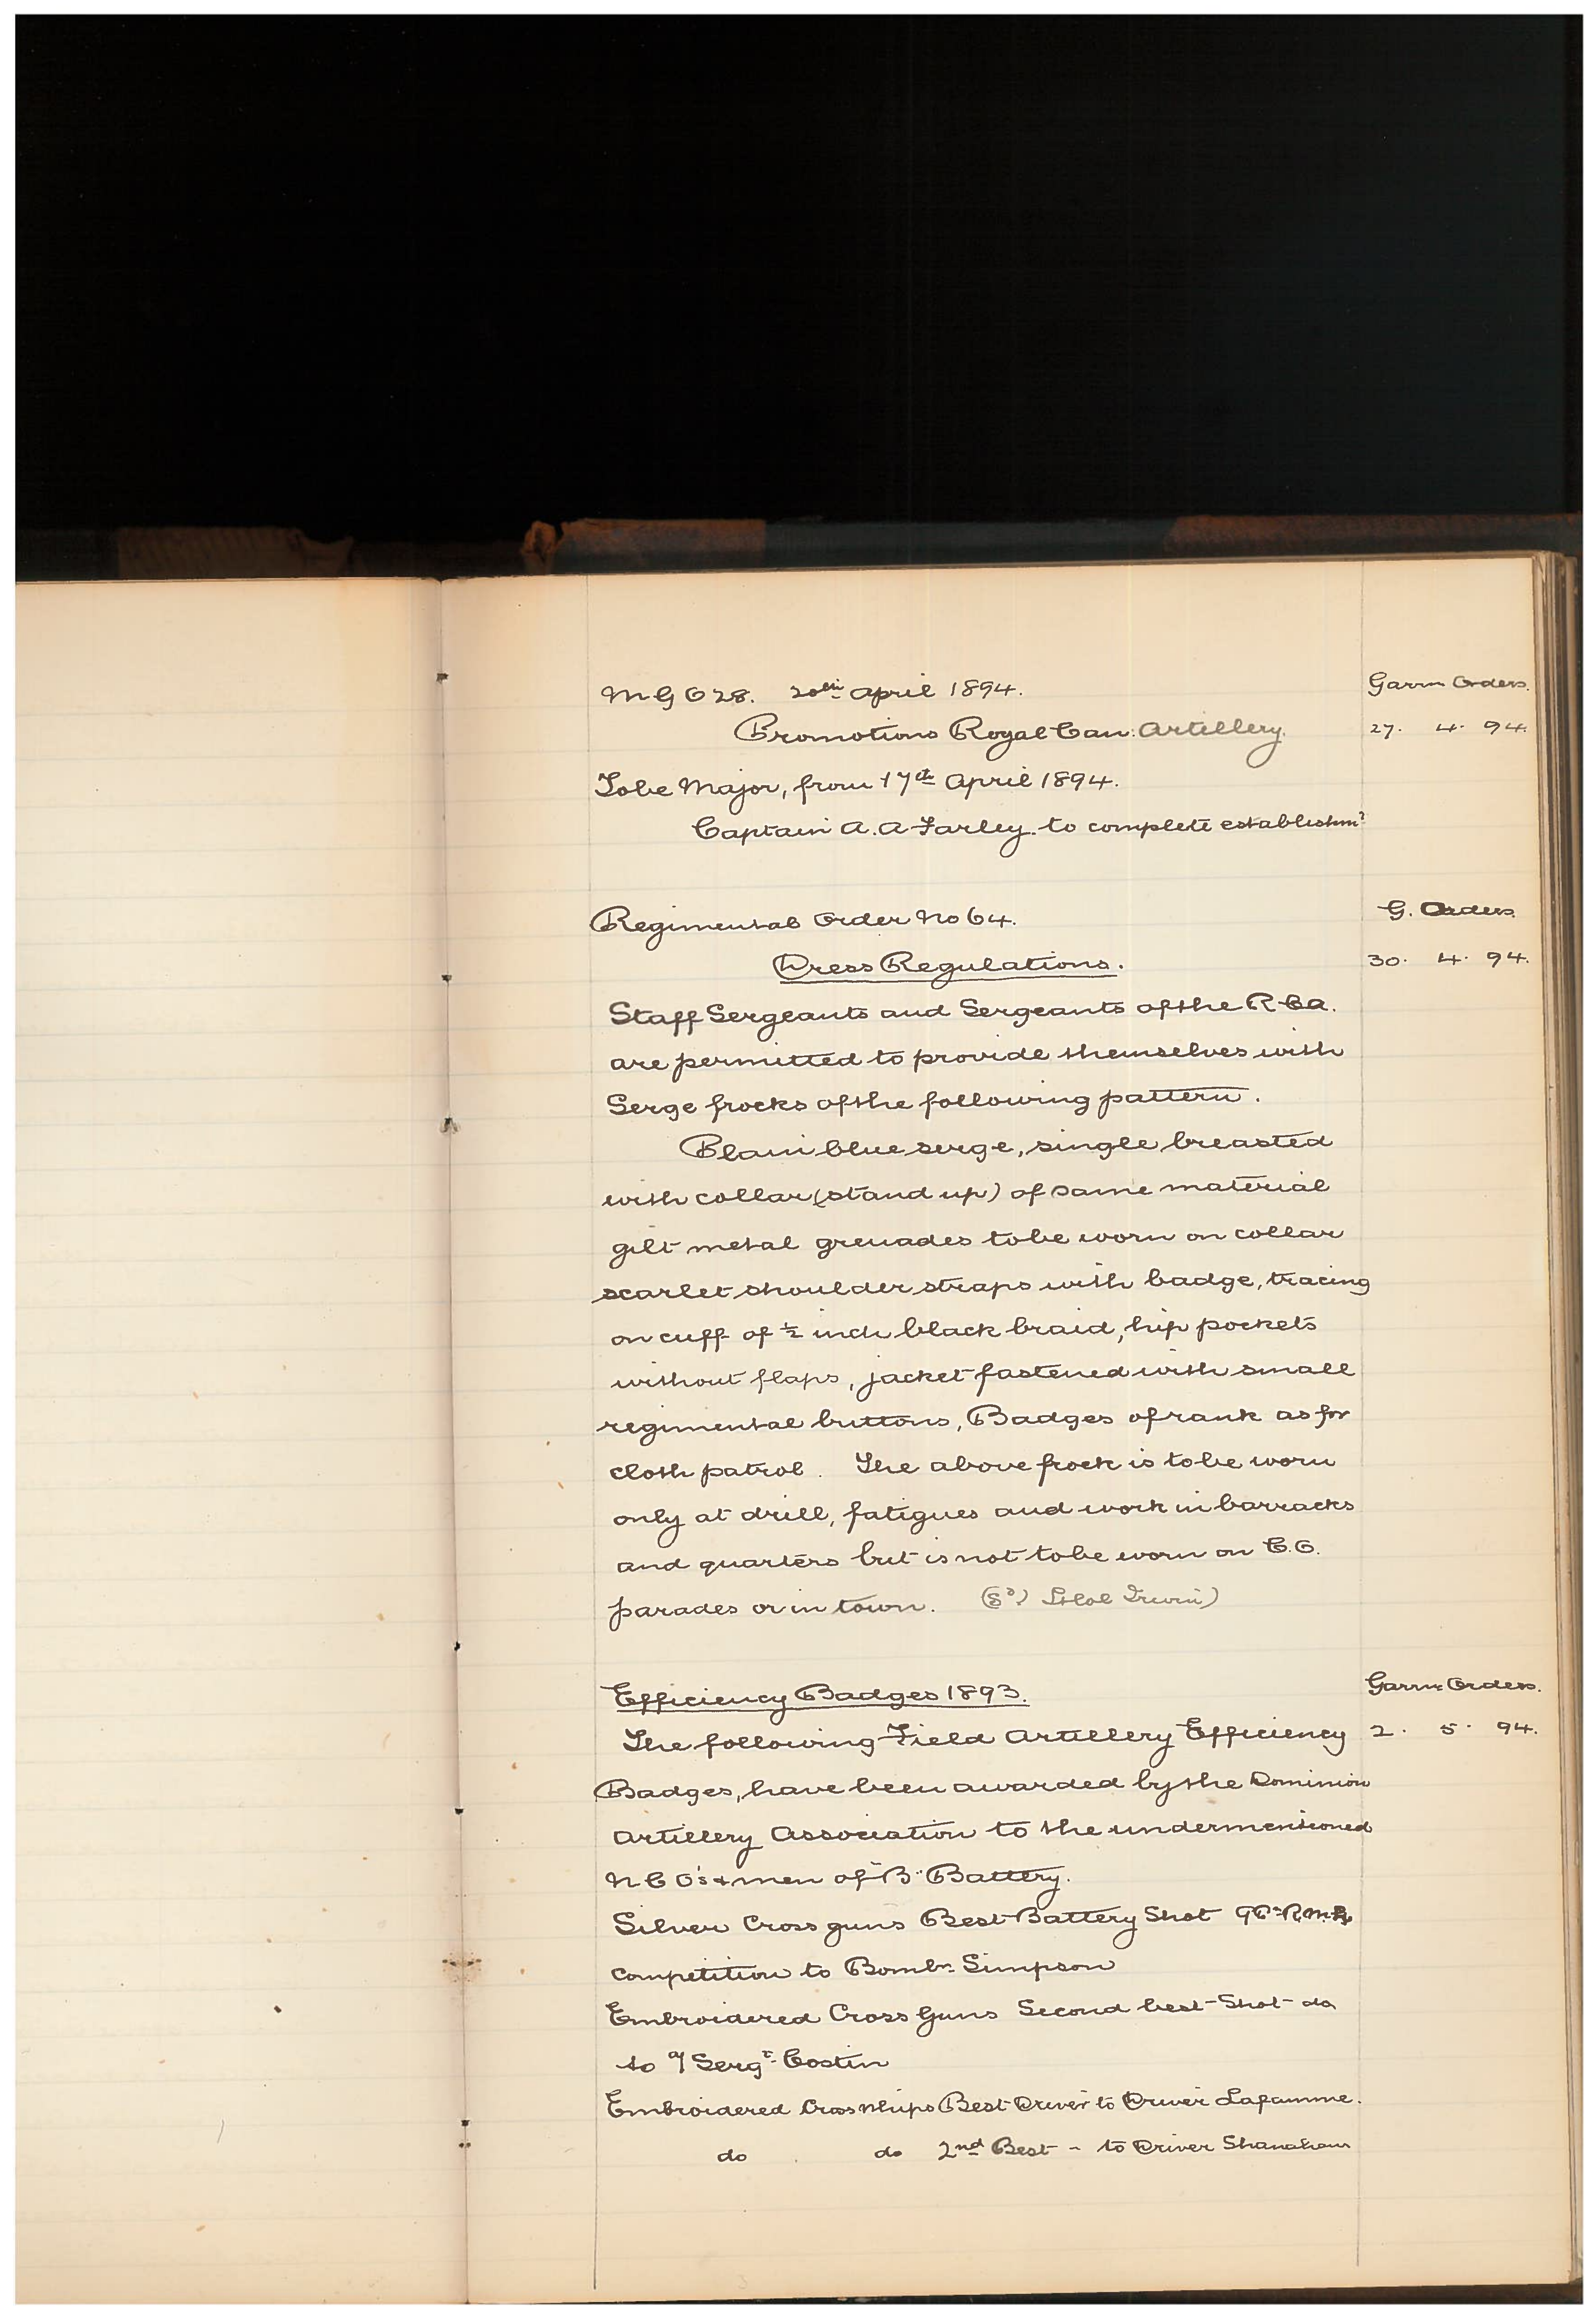 M G O 28. 20th April 1894. Garrn Orders.
Promotions Royal Can: Artillery. 27. 4. 94.
To be Major, from 17th April 1894.
Captain A. A Farley. to complete establishmt
Regimental Order No 64. G. Orders
Dress Regulations. 30. 4. 94.
Staff Sergeants and Sergeants of the R C A.
are permitted to provide themselves with
Serge frocks of the following pattern.
Plain blue serge, single breasted
with collar (stand up) of same material
gilt metal grenades to be worn on collar
scarlet shoulder straps with badge, tracing
on cuff of ½ inch black braid, hip pockets
without flaps, jacket fastened with small
regimental buttons, Badges of rank as for
cloth patrol. The above frock is to be worn
only at drill, fatigues and work in barracks
and quarters but is not to be worn on C.O.
parades or in town. (Sd) Lt Col Irwin)
Efficiency Badges 1893. Garrn Orders.
The following Field Artillery Efficiency 2. 5. 94.
Badges, have been awarded by the Dominion
Artillery Association to the undermentioned
N C O's + men of "B" Battery.
Silver Cross guns Best Battery Shot 9 Pr R.M.L
competition to Bombr Simpson
Embroidered Cross Guns Second best Shot do
to a/ Sergt Costin
Embroidered Cross Whips Best Driver to Driver Laflamme.
do do 2nd Best - to Driver Shanahan